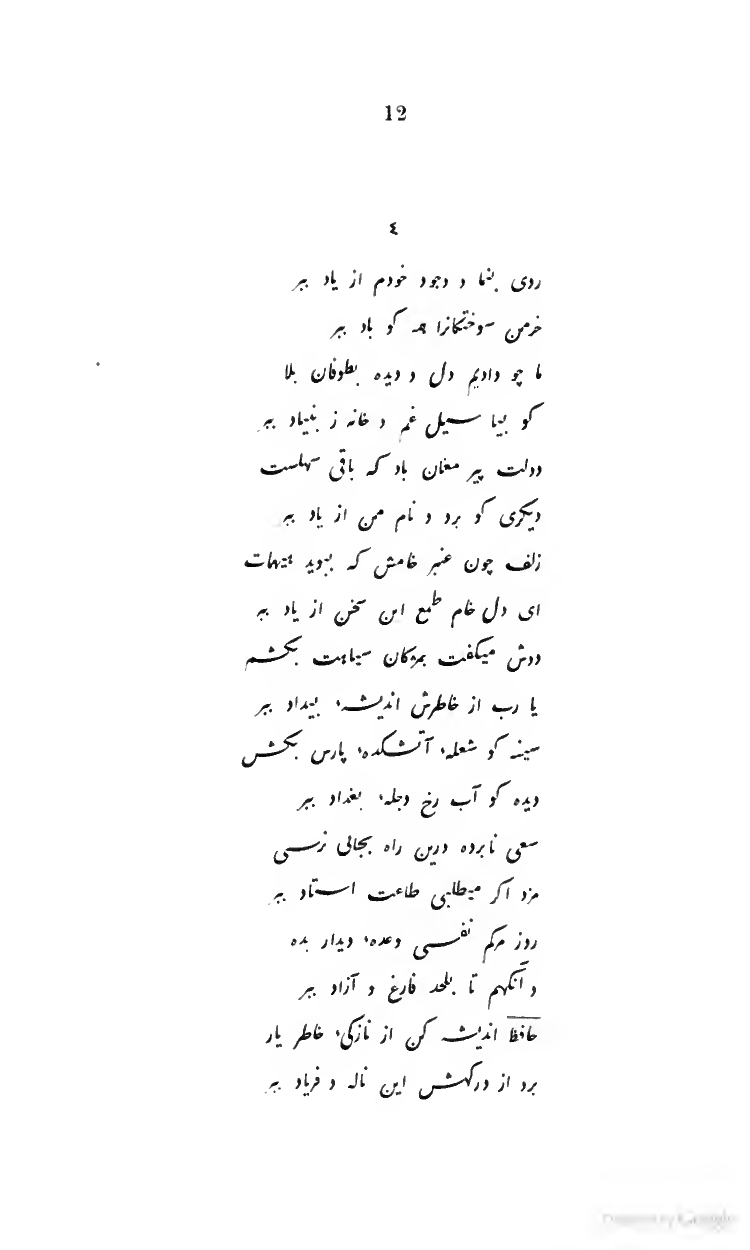 12
٤
روی بنما و وجود خودم از یاد ببر
خرمن سوختکانرا همه کو باد ببر
ما چو دادیم دل و دیده بطوفان بلا
کو بیا سیل غم و خانه ز بنیاد ببر
دولت پیر مغان باد که باقی سهلست
دیکری کو برو و نام من از یاد ببر
زلف چون عنبر خامش که ببوید هیهات
ای دل خام طمع این سخن از یاد ببر
دوش میکفت بمژکان سیاهت بکشم
یا رب از خاطرش اندیشهء بیداد ببر
سینه کو شعلهء آتشکدهء پارس بکش
دیده کو آب رخ دجلهء بغداد ببر
سعی نابرده درین راه بجائی نرسی
مزد اکر میطلبی طاعت استاد ببر
روز مرکم نفسی وعدهء دیدار بده
وآنکهم تا بلحد فارغ و آزاد ببر
حافظ اندیشه کن از نازکیء خاطر یار
برو از درکهش این ناله و فریاد ببر
Digitized by Google